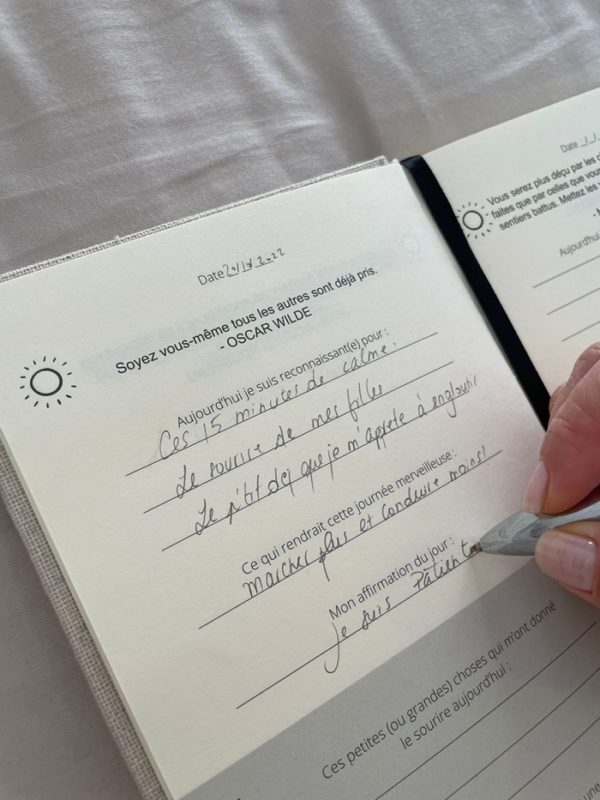 Date 20/10/2022
Soyez vous-même tous les autres sont déjà pris.
- OSCAR WILDE
Aujourd'hui je suis reconnaissant(e) pour :
Ces 15 minutes de calme.
Le sourire de mes filles
Le p'tit dej que je m'apprete à engloutir
Ce qui rendrait cette journée merveilleuse :
marcher plus et conduire moins!
Mon affirmation du jour :
Je suis Patiente
Ces petites (ou grandes) choses qui m'ont donné
le sourire aujourd'hui :
Date
Vous serez plus déçu par les
faites que par celles que vous
sentiers battus. Mettez les
Aujourd'hui